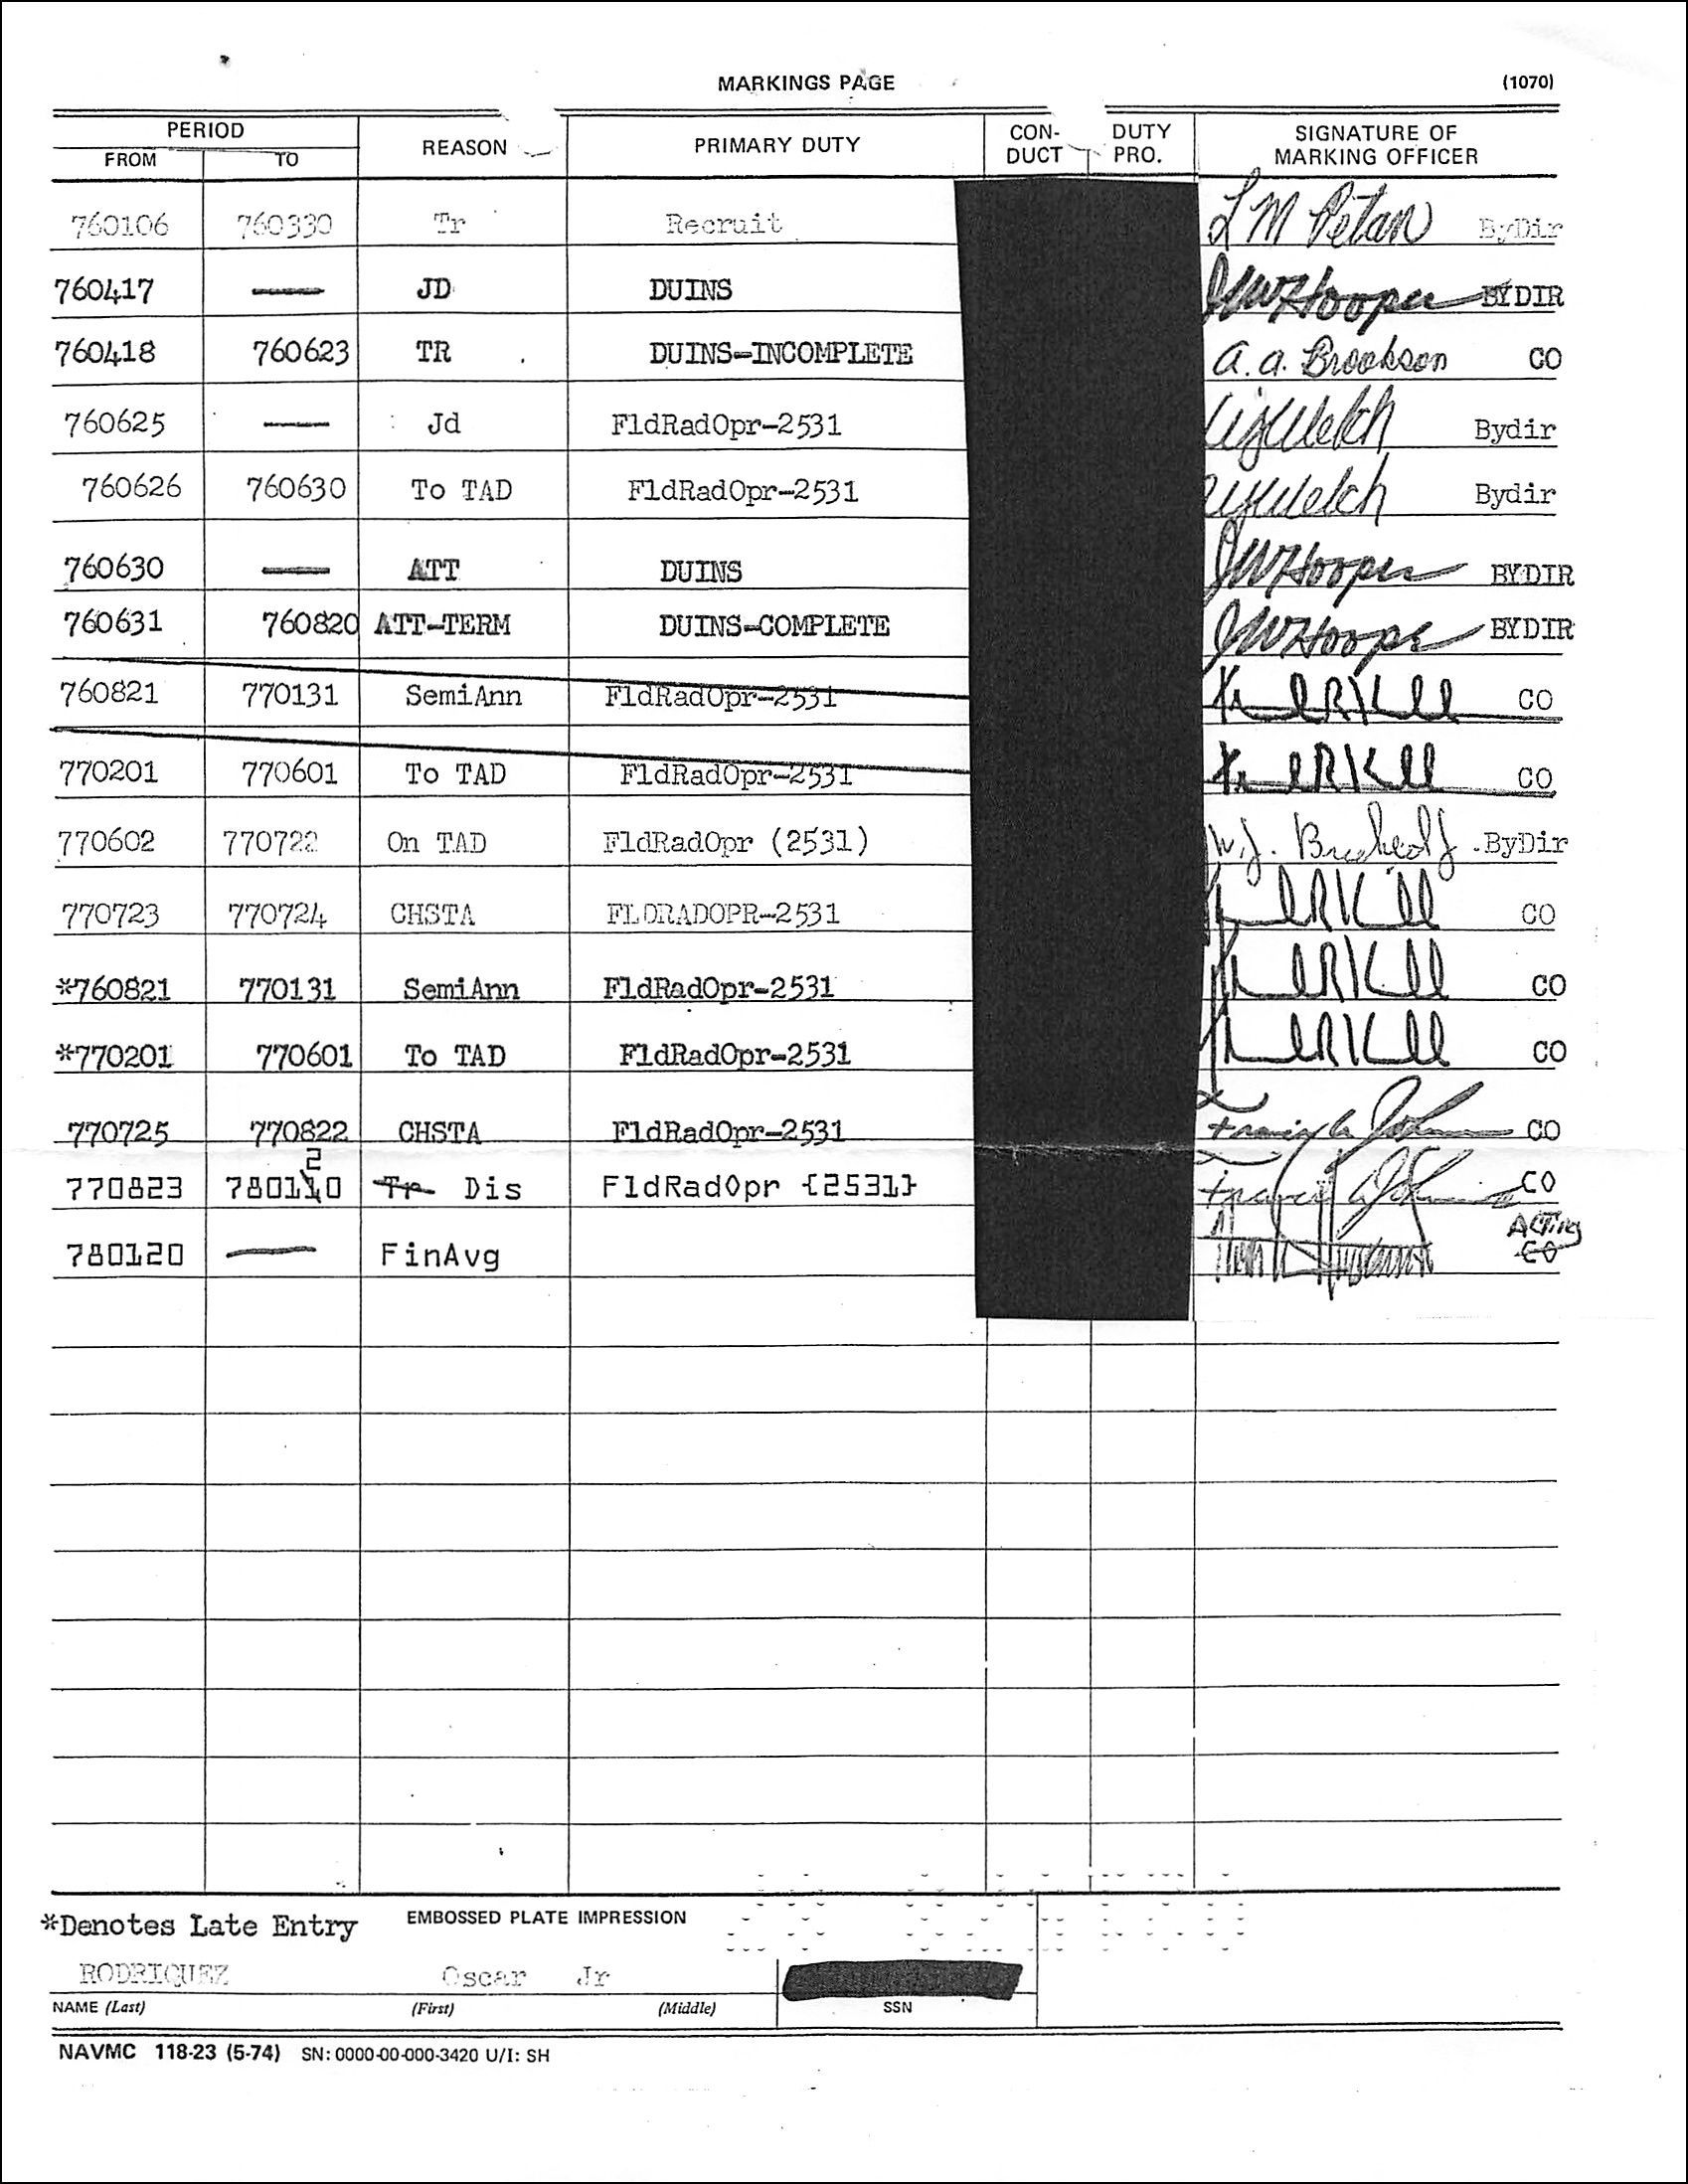 MARKINGS PAGE (1070)
PERIOD REASON PRIMARY DUTY CON-DUCT DUTY PRO. SIGNATURE OF MARKING OFFICER
FROM TO
760106 760330 Tr Recruit L M Petan ByDir
760417 — JD DUINS JW Hooper BYDIR
760418 760623 TR DUINS-INCOMPLETE a. a. Brookson CO
760625 — Jd FldRadOpr-2531 Welch Bydir
760626 760630 To TAD FldRadOpr-2531 Welch Bydir
760630 — ATT DUINS JW Hooper BYDIR
760631 760820 ATT-TERM DUINS-COMPLETE JW Hooper BYDIR
760821 770131 SemiAnn FldRadOpr-2531 CO
770201 770601 To TAD FldRadOpr-2531 CO
770602 770722 On TAD FldRadOpr (2531) W.J. ByDir
770723 770724 CHSTA FLDRADOPR-2531 CO
*760821 770131 SemiAnn FldRadOpr-2531 CO
*770201 770601 To TAD FldRadOpr-2531 CO
770725 770822 CHSTA FldRadOpr-2531 CO
2
770823 780110 Tr Dis FldRadOpr {2531} CO
780120 — FinAvg Acting CO
*Denotes Late Entry EMBOSSED PLATE IMPRESSION
RODRIQUEZ Oscar Jr
NAME (Last) (First) (Middle) SSN
NAVMC 118-23 (5-74) SN: 0000-00-000-3420 U/I: SH